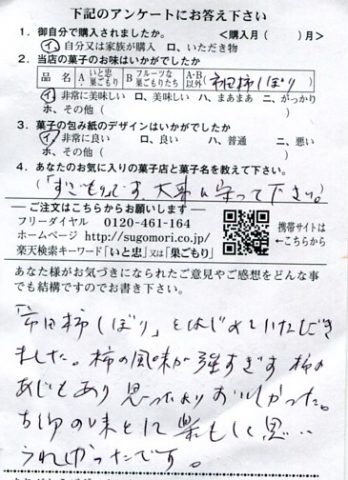 下記のアンケートにお答え下さい
1．御自分で購入されましたか。　＜購入月（　　）月＞
イ、自分又は家族が購入　ロ、いただき物
2．当店の菓子のお味はいかがでしたか
品　名　A いと忠 巣ごもり　B フルーツな 巣ごもりたち　A・B 以外　市田柿しぼり
イ、非常に美味しい　ロ、美味しい　ハ、まあまあ　ニ、がっかり
ホ、その他（　　　）
3．菓子の包み紙のデザインはいかがでしたか
イ、非常に良い　ロ、良い　ハ、普通　ニ、悪い
ホ、その他（　　　）
4．あなたのお気に入りの菓子店と菓子名を教えて下さい。
（「すごもり」です 大事に守って下さい。）
―ご注文はこちらからお願いします―
フリーダイヤル　0120-461-164
ホームページ　http://sugomori.co.jp/
楽天検索キーワード「いと忠」又は「巣ごもり」
携帯サイトは
←こちらから
あなた様がお気づきになられたご意見やご感想をどんな事
でも結構ですのでお書き下さい。
「市田柿しぼり」をはじめていただき
ました。柿の風味が強すぎず 柿の
あじもあり 思ったよりおいしかった。
の味とに 思…
うれしかったです。